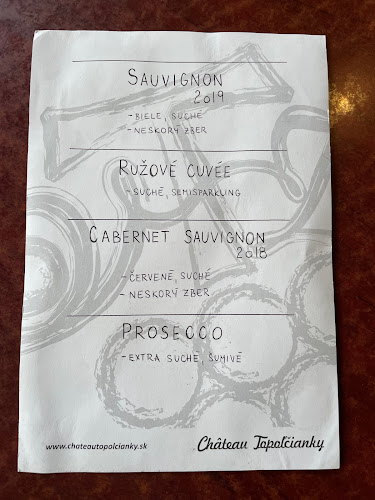 SAUVIGNON
2019
- BIELE, SUCHÉ
- NESKORÝ ZBER
RUŽOVÉ CUVÉE
- SUCHÉ, SEMISPARKLING
CABERNET SAUVIGNON
2018
- ČERVENÉ, SUCHÉ
- NESKORÝ ZBER
PROSECCO
- EXTRA SUCHÉ, ŠUMIVÉ
www.chateautopolcianky.sk
Château Topoľčianky